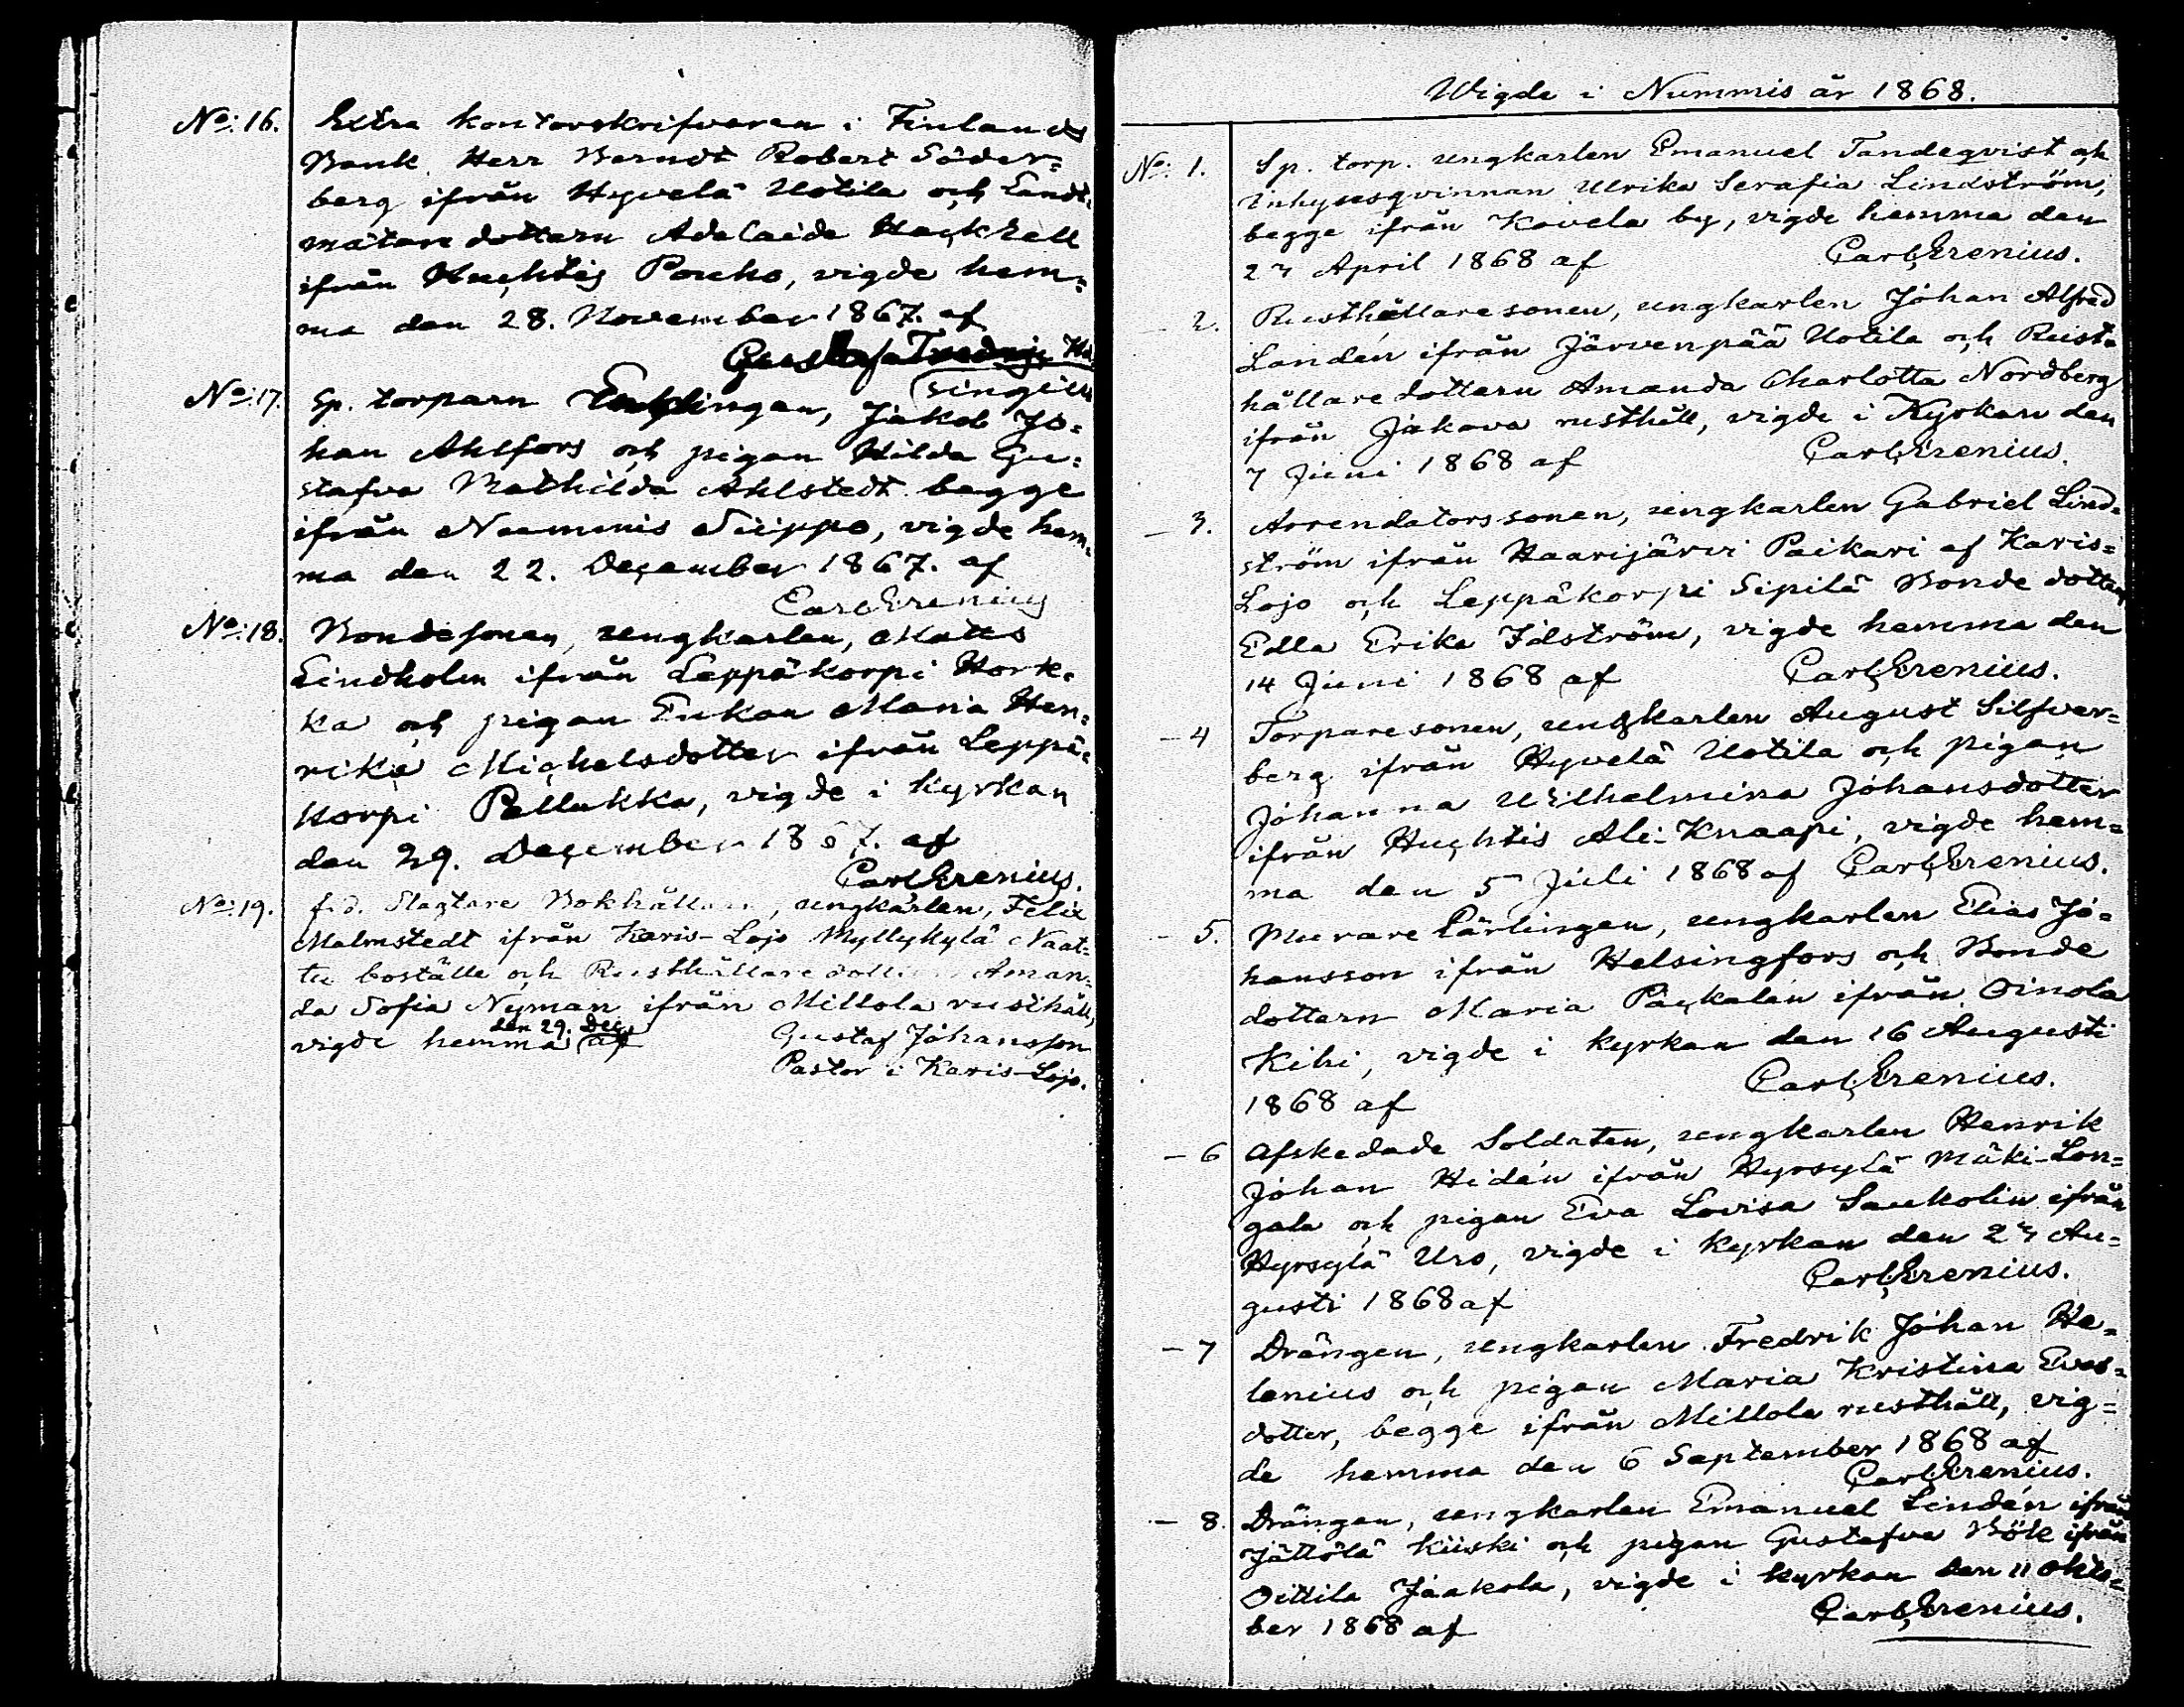 No: 16. Extra kontorskrifvaren i Finlands
Bank, Herr Berndt Robert Söder=
berg ifrån Hyvelä Uotila och Landt=
mätare dottern Adelaide Hackzell
ifrån Huchtis Poucho, vigde hem=
ma den 28. November 1867. af
No: 17. Sp. torparn Enklingen, Jakob Jo=
han Ahlfors och pigan Hilda Gu=
stafva Mathilda Ahlstedt begge
ifrån Nummis Siippo, vigde hem=
ma den 22. December 1867. af
Carl Grenius
No: 18. Bondesonen, ungkarlen, Matts
Lindholm ifrån Leppäkorpi Hork=
ka och pigan Enkan Maria Hen=
rika Michelsdotter ifrån Leppä=
korpi Pallukka, vigde i Kyrkan
den 29. December 1867. af
Carl Grenius.
No: 19. f.d. Slagtare Bokhållaren, ungkarlen, Felix
Malmstedt ifrån Karis-Lojo Myllykylä Naat=
tu boställe och Rusthållare dottern Aman=
da Sofia Nyman ifrån Millola rusthåll,
vigde hemma den 29. Dec. af Gustaf Johansson
Pastor i Karis-Lojo.
Wigde i Nummis år 1868.
No: 1. Sp. torp. ungkarlen Emanuel Tandeqvist och
Inhysesqvinnan Ulrika Serafia Lindström,
begge ifrån Kovela by, vigde hemma den
27 April 1868 af Carl Grenius.
- 2. Rusthållaresonen, ungkarlen Johan Alfred
Landén ifrån Järvenpää Uotila och Rust=
hållaredottern Amanda Charlotta Nordberg
ifrån Jakova rusthåll, vigde i Kyrkan den
7 Juni 1868 af Carl Grenius.
- 3. Arrendatorssonen, ungkarlen Gabriel Lind=
ström ifrån Haarijärvi Paikari af Karis=
Lojo och Leppäkorpi Sipilä Bonde dottern
Edla Erika Idström, vigde hemma den
14 Juni 1868 af Carl Grenius.
- 4 Torparesonen, ungkarlen August Silfver=
berg ifrån Hyvelä Uotila och pigan
Johanna Wilhelmina Johansdotter
ifrån Huchtis Ali-Knaapi, vigde hem=
ma den 5 Juli 1868 af Carl Grenius.
- 5. Murare Lärlingen, ungkarlen Elias Jo=
hansson ifrån Helsingfors och Bonde
dottern Maria Päckalén ifrån Oinola
Kihi, vigde i kyrkan den 16 Augusti
1868 af Carl Grenius.
- 6 Afskedade Soldaten, ungkarlen Henrik
Johan Hidén ifrån Hyrsylä Mäki-Lon=
gala och pigan Eva Lovisa Saukolin ifrån
Hyrsylä Uro, vigde i Kyrkan den 23 Au=
gusti 1868 af Carl Grenius.
- 7 Drängen, ungkarlen Fredrik Johan He=
lenius och pigan Maria Kristina Evas=
dotter, begge ifrån Millola rusthåll, vig=
de hemma den 6 September 1868 af
Carl Grenius.
- 8. Drängen, ungkarlen Emanuel Lindén ifrån
Jättölä Kiiski och pigan Gustafva Böle ifrån
Oittila Jaakola, vigde i kyrkan den 11 Okto=
ber 1868 af Carl Grenius.